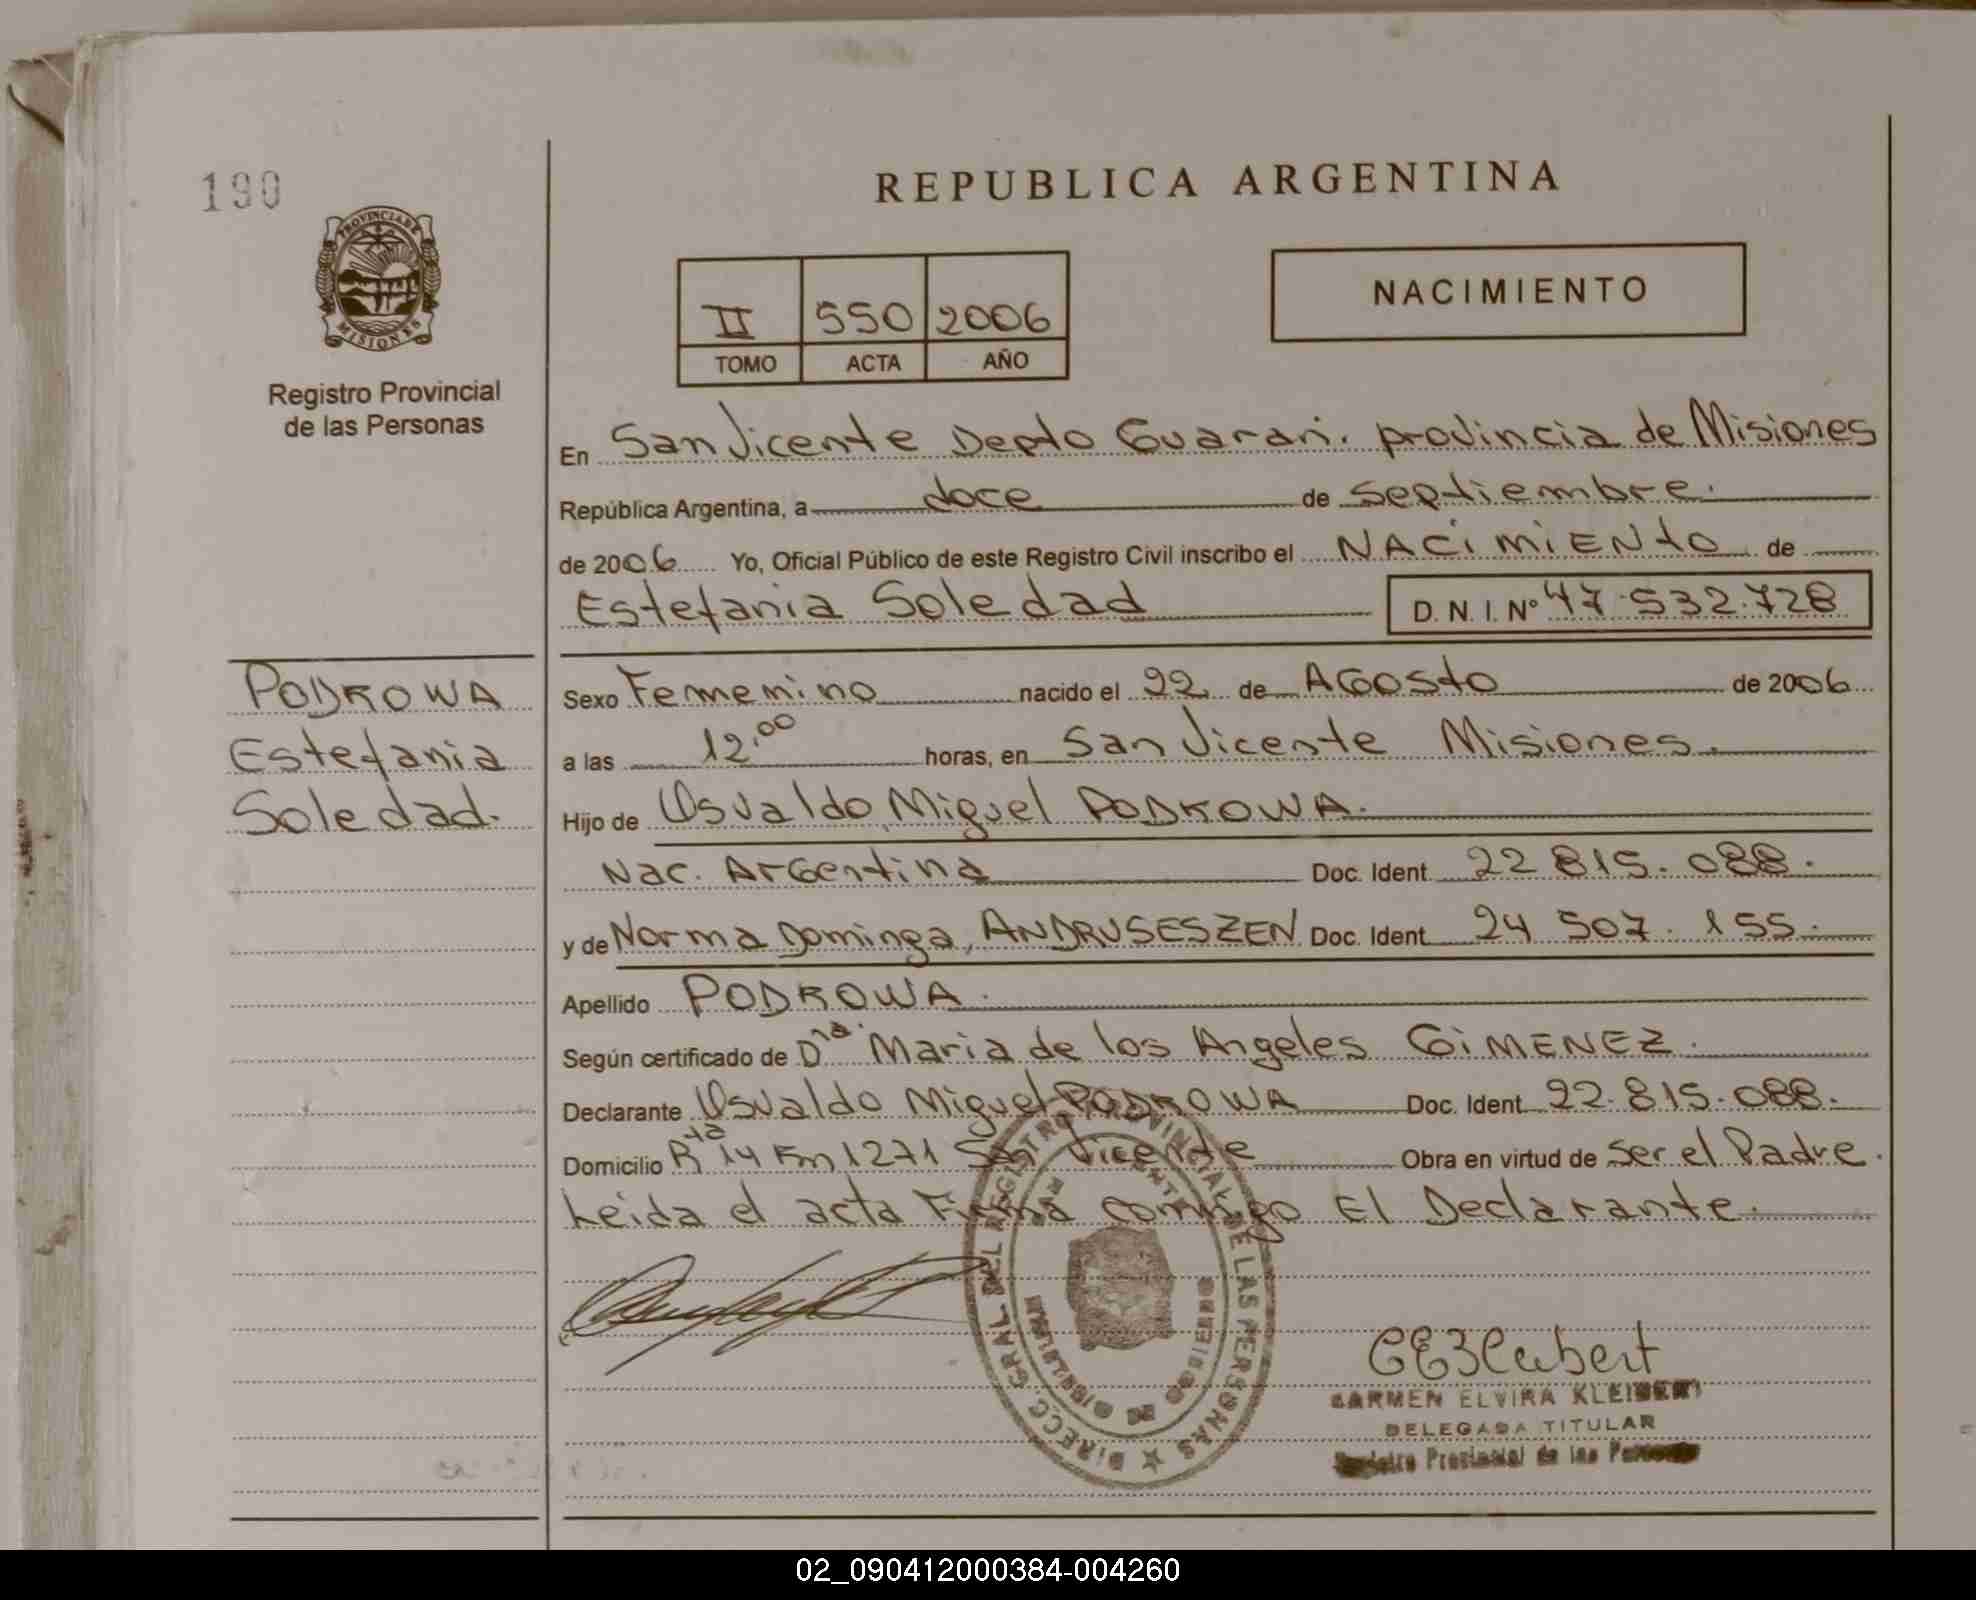 190
PROVINCIA DE
MISIONES
Registro Provincial
de las Personas
REPUBLICA ARGENTINA
II 550 2006
TOMO ACTA AÑO
NACIMIENTO
En San Vicente Depto Guarani. provincia de Misiones
República Argentina, a doce de septiembre.
de 2006 Yo, Oficial Público de este Registro Civil inscribo el NACIMIENTO de
Estefania Soledad D. N. I. Nº 47.532.728
PODKOWA
Estefania
Soledad.
Sexo Femenino nacido el 22 de AGOSTO de 2006
a las 12,00 horas, en San Vicente Misiones.
Hijo de Osvaldo Miguel PODKOWA.
Nac. Argentina Doc. Ident. 22 815.088.
y de Norma Dominga, ANDRUSESZEN Doc. Ident. 24 507.155.
Apellido PODKOWA.
Según certificado de Dra. Maria de los Angeles GIMENEZ.
Declarante Osvaldo Miguel PODKOWA Doc. Ident. 22.815.088.
Domicilio Rta 14 Km 1271 San Vicente Obra en virtud de ser el Padre.
Leida el acta Firma conmigo El Declarante.
DIRECC. GRAL DEL REGISTRO PROVINCIAL DE LAS PERSONAS
SAN VICENTE
MISIONES
CARMEN ELVIRA KLEIBERT
DELEGADA TITULAR
Registro Provincial de las Personas
02_090412000384-004260